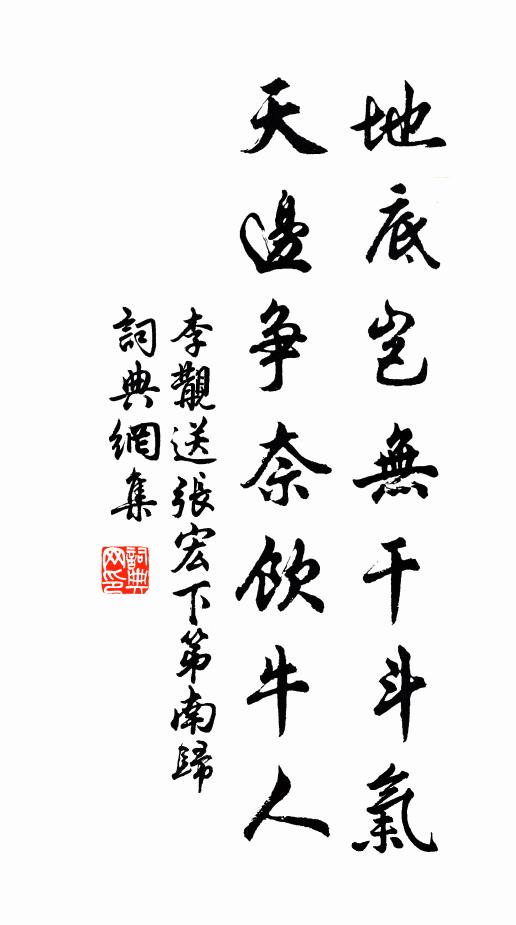 地底豈無干斗氣
天邊爭奈飲牛人
李覯送張宏下第南歸
詞典網集
詞典网印